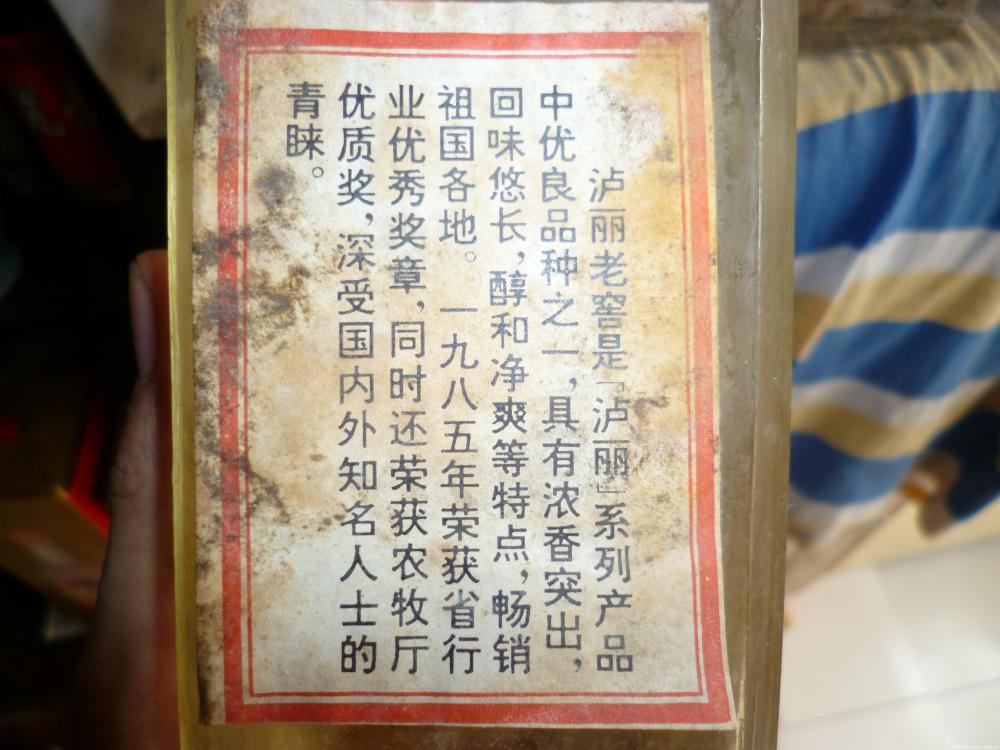 泸丽老窖是「泸丽」系列产品
中优良品种之一，具有浓香突出，
回味悠长，醇和净爽等特点，畅销
祖国各地。一九八五年荣获省行
业优秀奖章，同时还荣获农牧厅
优质奖，深受国内外知名人士的
青睐。